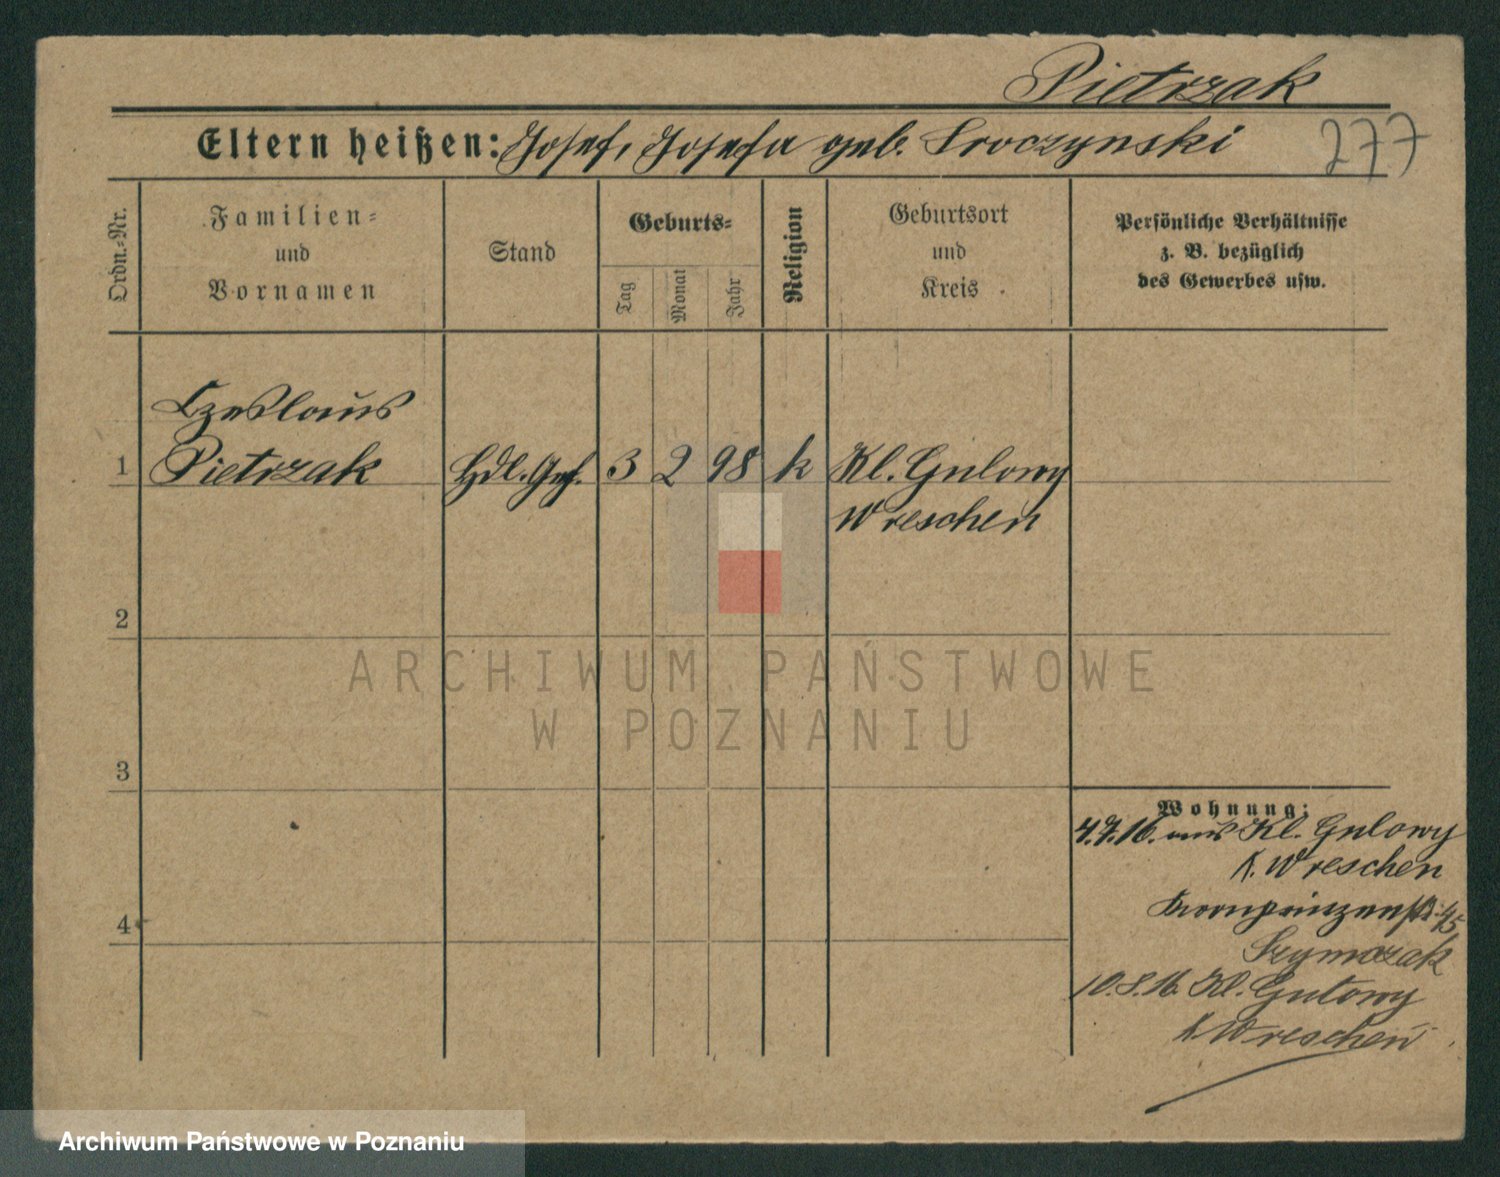 Pietrzak
Eltern heißen: Josef, Josefa geb. Sroczynski
277
Ordn.=Nr.
Familien=
und
Vornamen
Stand
Geburts=
Tag
Monat
Jahr
Religion
Geburtsort
und
Kreis
Persönliche Verhältnisse
z. B. bezüglich
des Gewerbes usw.
Czeslaus
1 Pietrzak Hdl. Geh. 3 2 98 k Kl. Gulowy
Wreschen
2
3
4
Wohnung:
4.7.16. aus Kl. Gulowy
K. Wreschen
Kronprinzenstr. 45
Szymczak
10.8.16. Kl. Gutowy
K. Wreschen
ARCHIWUM PAŃSTWOWE
W POZNANIU
Archiwum Państwowe w Poznaniu